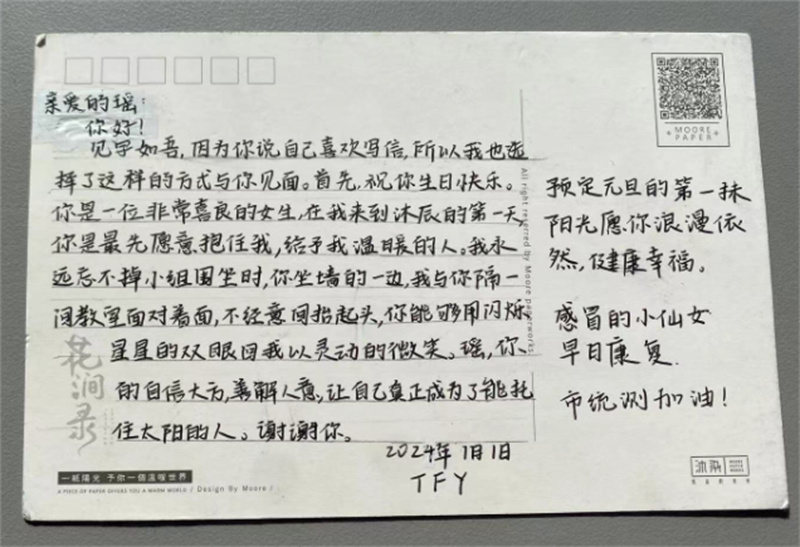 亲爱的瑶：
你好！
见字如吾，因为你说自己喜欢写信，所以我也选
择了这样的方式与你见面。首先，祝你生日快乐。
你是一位非常善良的女生，在我来到沐辰的第一天，
你是最先愿意抱住我，给予我温暖的人。我永
远忘不掉小组围坐时，你坐墙的一边，我与你隔一
间教室面对着面，不经意间抬起头，你能够用闪烁
星星的双眼回我以灵动的微笑。瑶，你
的自信大方，善解人意，让自己真正成为了能托
住太阳的人。谢谢你。
2024年1月1日
TFY
预定元旦的第一抹
阳光愿你浪漫依
然，健康幸福。
感冒的小仙女
早日康复
市统测加油！
MOORE
PAPER
All right reserred by Moore paperworks
花涧录
一纸陽光 予你一個溫暖世界
A PIECE OF PAPER OFFERS YOU A WARM WORLD / Design By Moore /